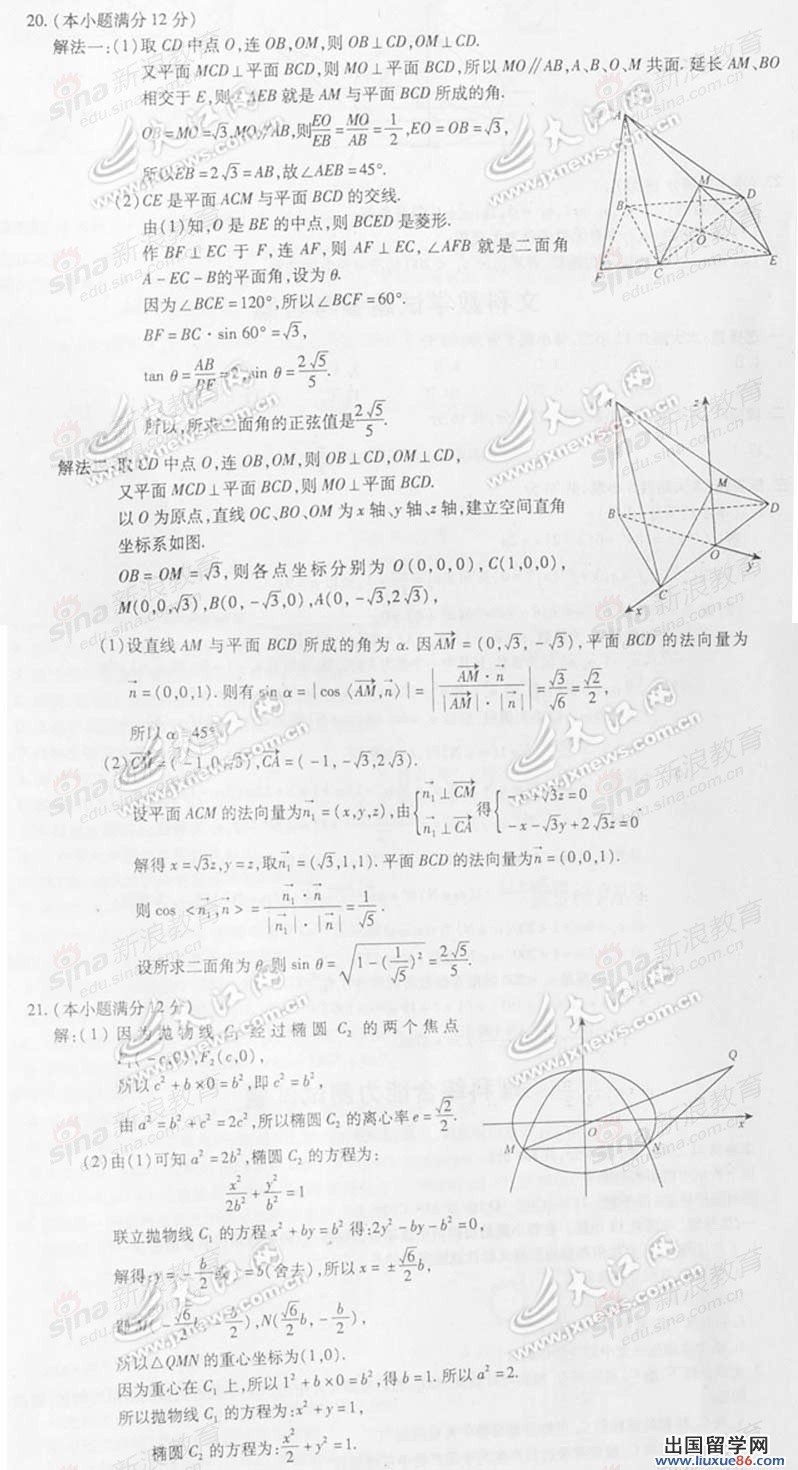 20. (本小题满分 12 分)
解法一:(1)取 CD 中点 O,连 OB,OM,则 OB⊥CD,OM⊥CD.
又平面 MCD⊥平面 BCD,则 MO⊥平面 BCD,所以 MO∥AB,A、B、O、M 共面. 延长 AM、BO
相交于 E,则∠AEB 就是 AM 与平面 BCD 所成的角.
OB=MO=√3,MO∥AB,则EO/EB=MO/AB=1/2,EO=OB=√3,
所以EB=2√3=AB,故∠AEB=45°.
(2)CE 是平面 ACM 与平面 BCD 的交线.
由(1)知,O 是 BE 的中点,则 BCED 是菱形.
作 BF⊥EC 于 F,连 AF,则 AF⊥EC,∠AFB 就是二面角
A-EC-B的平面角,设为 θ.
因为∠BCE=120°,所以∠BCF=60°.
BF=BC·sin 60°=√3,
tan θ=AB/BF=2,sin θ=2√5/5.
所以,所求二面角的正弦值是2√5/5.
A
B
C
D
M
O
E
F
解法二:取 CD 中点 O,连 OB,OM,则 OB⊥CD,OM⊥CD,
又平面 MCD⊥平面 BCD,则 MO⊥平面 BCD.
以 O 为原点,直线 OC、BO、OM 为 x 轴、y 轴、z 轴,建立空间直角
坐标系如图.
OB=OM=√3,则各点坐标分别为 O(0,0,0),C(1,0,0),
M(0,0,√3),B(0,-√3,0),A(0,-√3,2√3),
A
z
M
B
D
O
y
C
x
(1)设直线 AM 与平面 BCD 所成的角为 α. 因AM→=(0,√3,-√3),平面 BCD 的法向量为
n→=(0,0,1). 则有 sin α=|cos〈AM→,n→〉|=|AM→·n→/(|AM→|·|n→|)|=√3/√6=√2/2,
所以 α=45°.
(2)CM→=(-1,0,√3),CA→=(-1,-√3,2√3).
设平面 ACM 的法向量为n₁→=(x,y,z),由{n₁→⊥CM→ n₁→⊥CA→ 得{-x+√3z=0 -x-√3y+2√3z=0.
解得 x=√3z,y=z,取n₁→=(√3,1,1). 平面 BCD 的法向量为n→=(0,0,1).
则 cos <n₁→,n→>=n₁→·n→/(|n₁→|·|n→|)=1/√5.
设所求二面角为 θ,则 sin θ=√(1-(1/√5)²)=2√5/5.
21. (本小题满分 12 分)
解:(1) 因为抛物线 C₁ 经过椭圆 C₂ 的两个焦点
F₁(-c,0),F₂(c,0),
所以 c²+b×0=b²,即 c²=b²,
由 a²=b²+c²=2c²,所以椭圆 C₂ 的离心率 e=√2/2.
(2)由(1)可知 a²=2b²,椭圆 C₂ 的方程为:
x²/2b²+y²/b²=1
联立抛物线 C₁ 的方程 x²+by=b² 得:2y²-by-b²=0,
解得:y=-b/2或y=b(舍去),所以 x=±√6/2 b,
即M(-√6/2 b,-b/2),N(√6/2 b,-b/2),
所以△QMN 的重心坐标为(1,0).
因为重心在 C₁ 上,所以 1²+b×0=b²,得 b=1. 所以 a²=2.
所以抛物线 C₁ 的方程为:x²+y=1,
椭圆 C₂ 的方程为:x²/2+y²=1.
Q
O
x
M
N
sina 新浪教育
edu.sina.com.cn
大江网
www.jxnews.com.cn
出国留学网
www.liuxue86.com